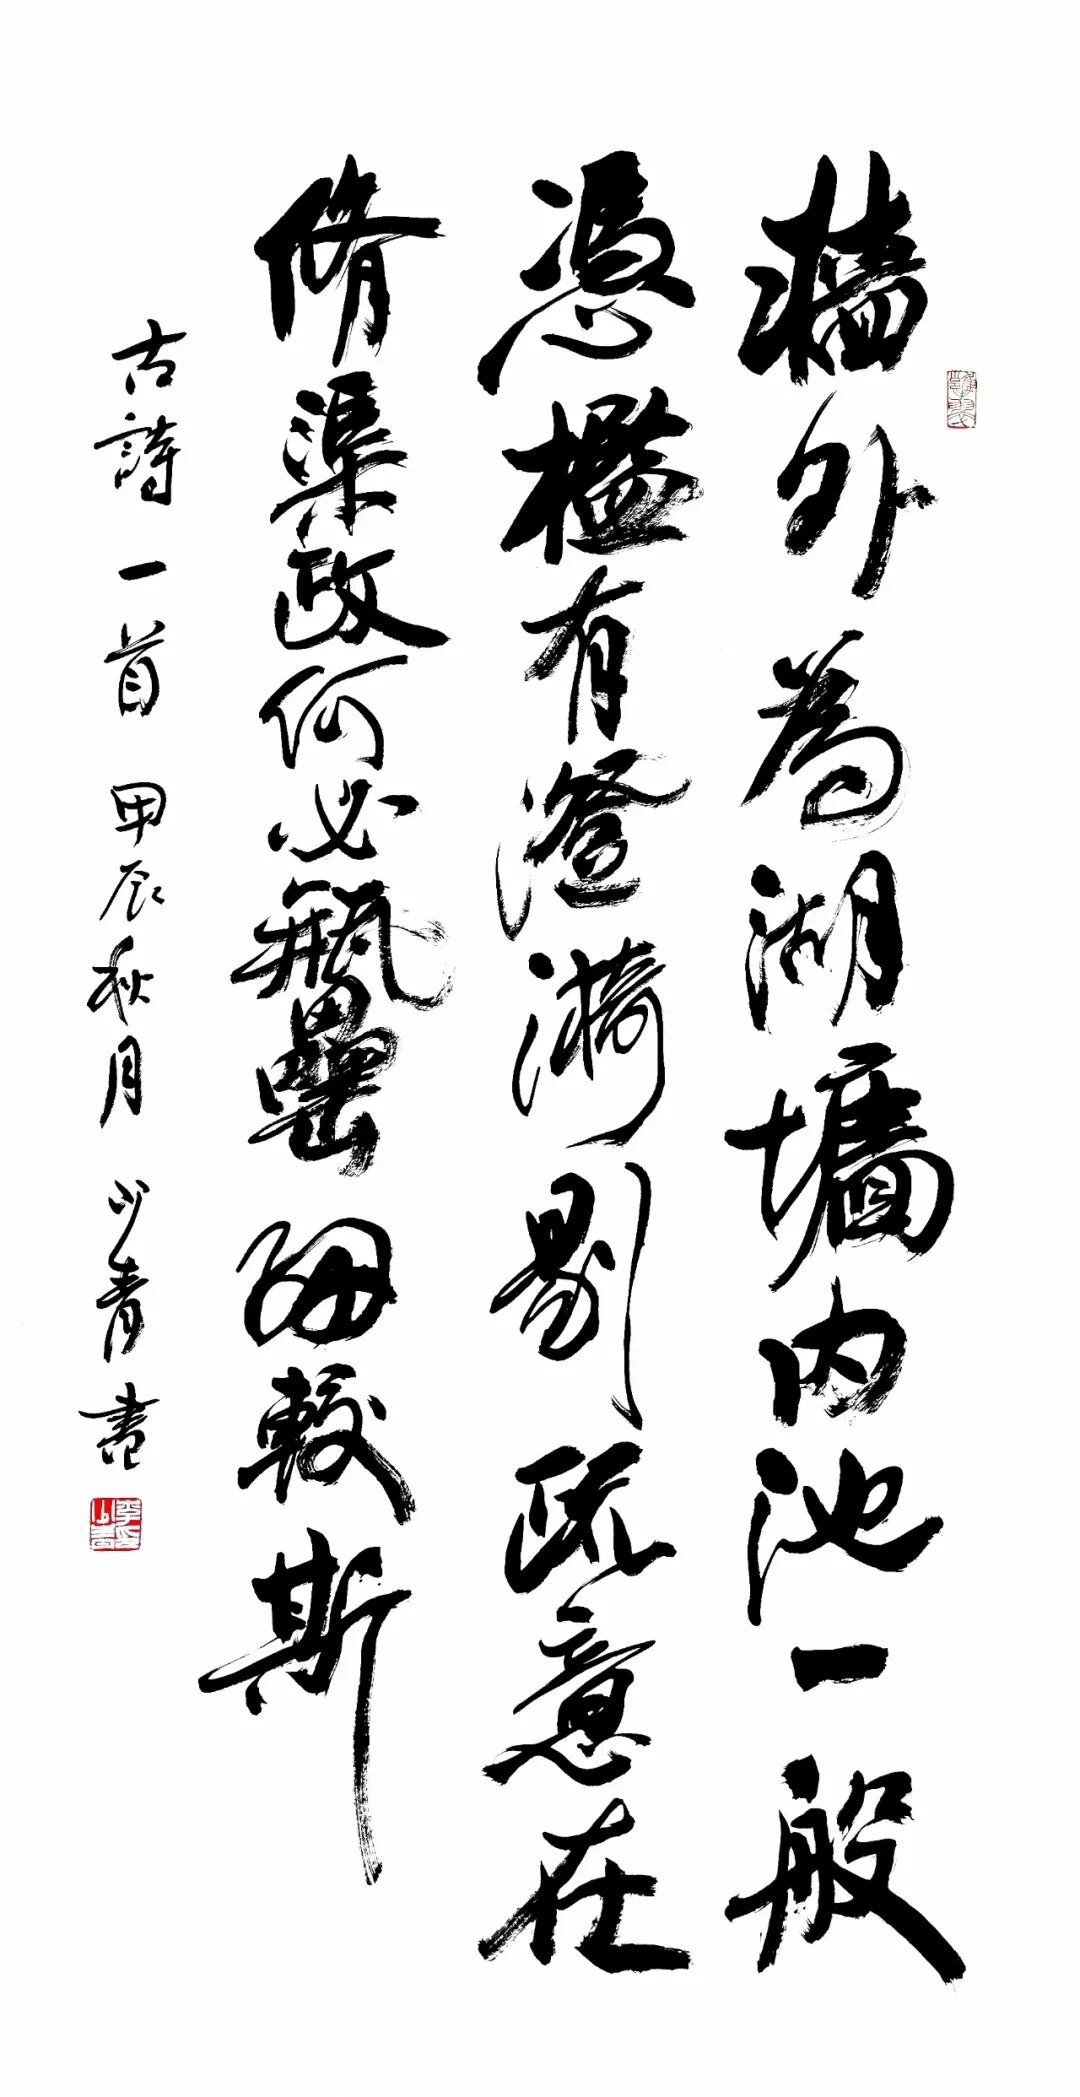 牆外為湖墻内池一般
憑檻有澄漪剔疏意在
脩渠政何必瓶罍細較斯
古詩一首 甲辰秋月 少青書